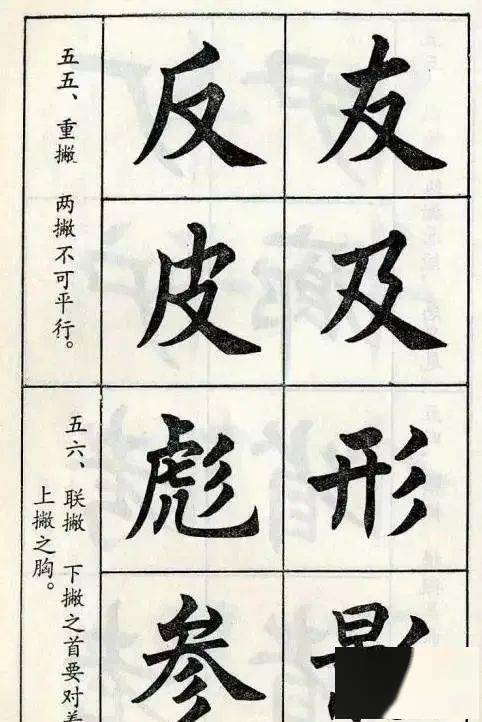 友及形
反皮彪参
五五、重撇 两撇不可平行。
五六、联撇 下撇之首要对着
上撇之胸。